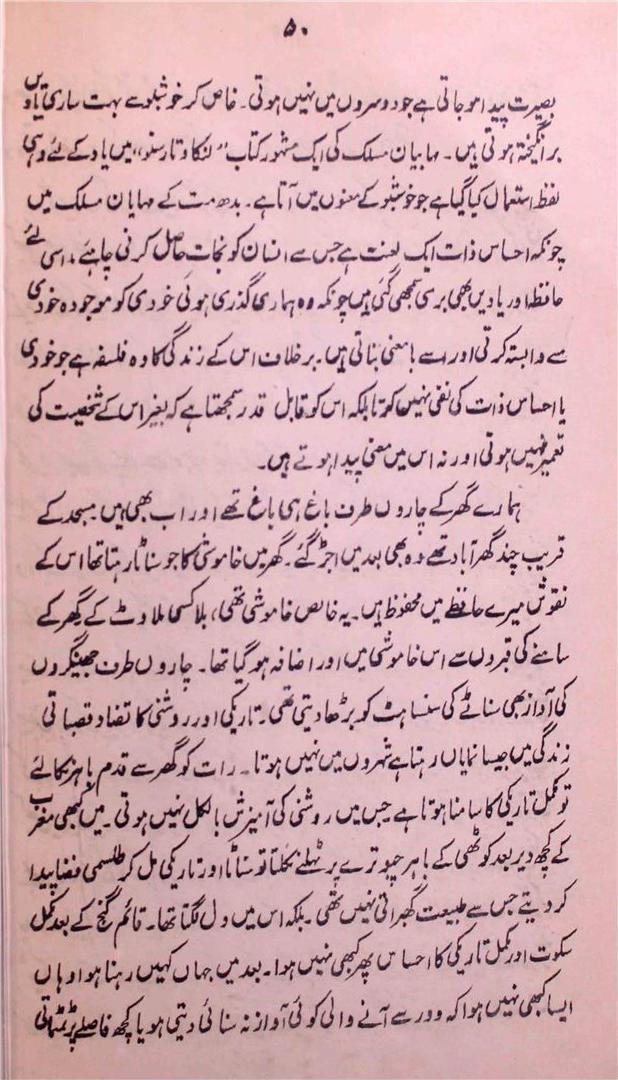 ۵۰
بصیرت پیدا ہو جاتی ہے جو دوسروں میں نہیں ہوتی۔ خاص کر خوشبو سے بہت ساری یادیں
برانگیختہ ہوتی ہیں۔ مہایان مسلک کی ایک مشہور کتاب "لنکا وتار سنو" میں یاد کے لئے وہی
لفظ استعمال کیا گیا ہے جو خوشبو کے معنوں میں آتا ہے۔ بدھ مت کے مہایان مسلک میں
چونکہ احساس ذات ایک لعنت ہے جس سے انسان کو نجات حاصل کرنی چاہئے، اسی لئے
حافظہ اور یادیں بھی بری سمجھی گئی ہیں چونکہ وہ ہماری گذری ہوئی خودی کو موجودہ خودی
سے وابستہ کرتی اور اسے بامعنی بناتی ہیں۔ برخلاف اس کے زندگی کا وہ فلسفہ ہے جو خودی
یا احساس ذات کی نفی نہیں کرتا بلکہ اس کو قابل قدر سمجھتا ہے کہ بغیر اس کے شخصیت کی
تعمیر نہیں ہوتی اور نہ اس میں معنی پیدا ہوتے ہیں۔
ہمارے گھر کے چاروں طرف باغ ہی باغ تھے اور اب بھی ہیں۔ مسجد کے
قریب چند گھر آباد تھے وہ بھی بعد میں اجڑ گئے۔ گھر میں خاموشی کا جو سناٹا رہتا تھا اس کے
نقوش میرے حافظے میں محفوظ ہیں۔ یہ خالص خاموشی تھی، بلا کسی ملاوٹ کے گھر کے
سامنے کی قبروں سے اس خاموشی میں اور اضافہ ہو گیا تھا۔ چاروں طرف جھینگروں
کی آواز بھی سناٹے کی سنساہٹ کو بڑھا دیتی تھی۔ تاریکی اور روشنی کا تضاد قصباتی
زندگی میں جیسا نمایاں رہتا ہے شہروں میں نہیں ہوتا۔ رات کو گھر سے قدم باہر نکالئے
تو مکمل تاریکی کا سامنا ہوتا ہے جس میں روشنی کی آمیزش بالکل نہیں ہوتی۔ میں کبھی مغرب
کے کچھ دیر بعد کوٹھی کے باہر چبوترے پر ٹہلنے نکلتا تو سناٹا اور تاریکی مل کر طلسمی فضا پیدا
کر دیتے جس سے طبیعت گھبراتی نہیں تھی۔ بلکہ اس میں دل لگتا تھا۔ قائم گنج کے بعد مکمل
سکوت اور مکمل تاریکی کا احساس پھر کبھی نہیں ہوا۔ بعد میں جہاں کہیں رہنا ہوا وہاں
ایسا کبھی نہیں ہوا کہ دور سے آنے والی کوئی آواز نہ سنائی دیتی ہو یا کچھ فاصلے پر ٹمٹماتی